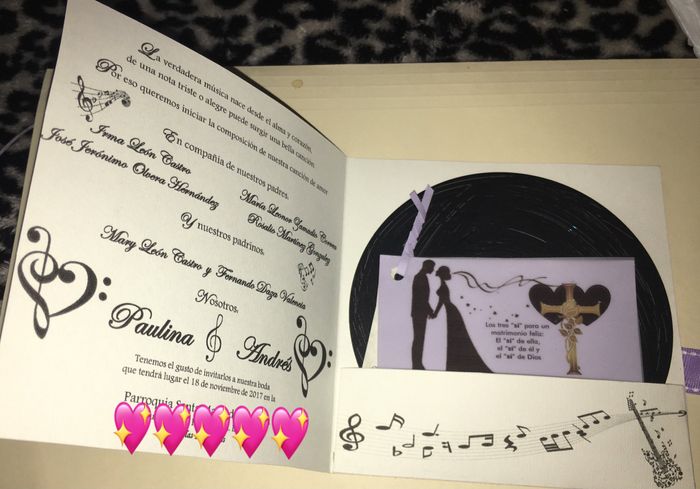 La verdadera música nace desde el alma y corazón,
de una nota triste o alegre puede surgir una bella canción.
Por eso queremos iniciar la composición de nuestra canción de amor
En compañía de nuestros padres,
Irma León Castro
José Jerónimo Olvera Hernández
María Leonor Zamudio
Rosalio Martínez González
Y nuestros padrinos,
Mary León Castro y Fernando Daza Valencia
Nosotros,
Paulina Andrés
Tenemos el gusto de invitarlos a nuestra boda
que tendrá lugar el 18 de noviembre de 2017 en la
Parroquia
Los tres "si" para un
matrimonio feliz:
El "si" de ella,
el "si" de él y
el "si" de Dios